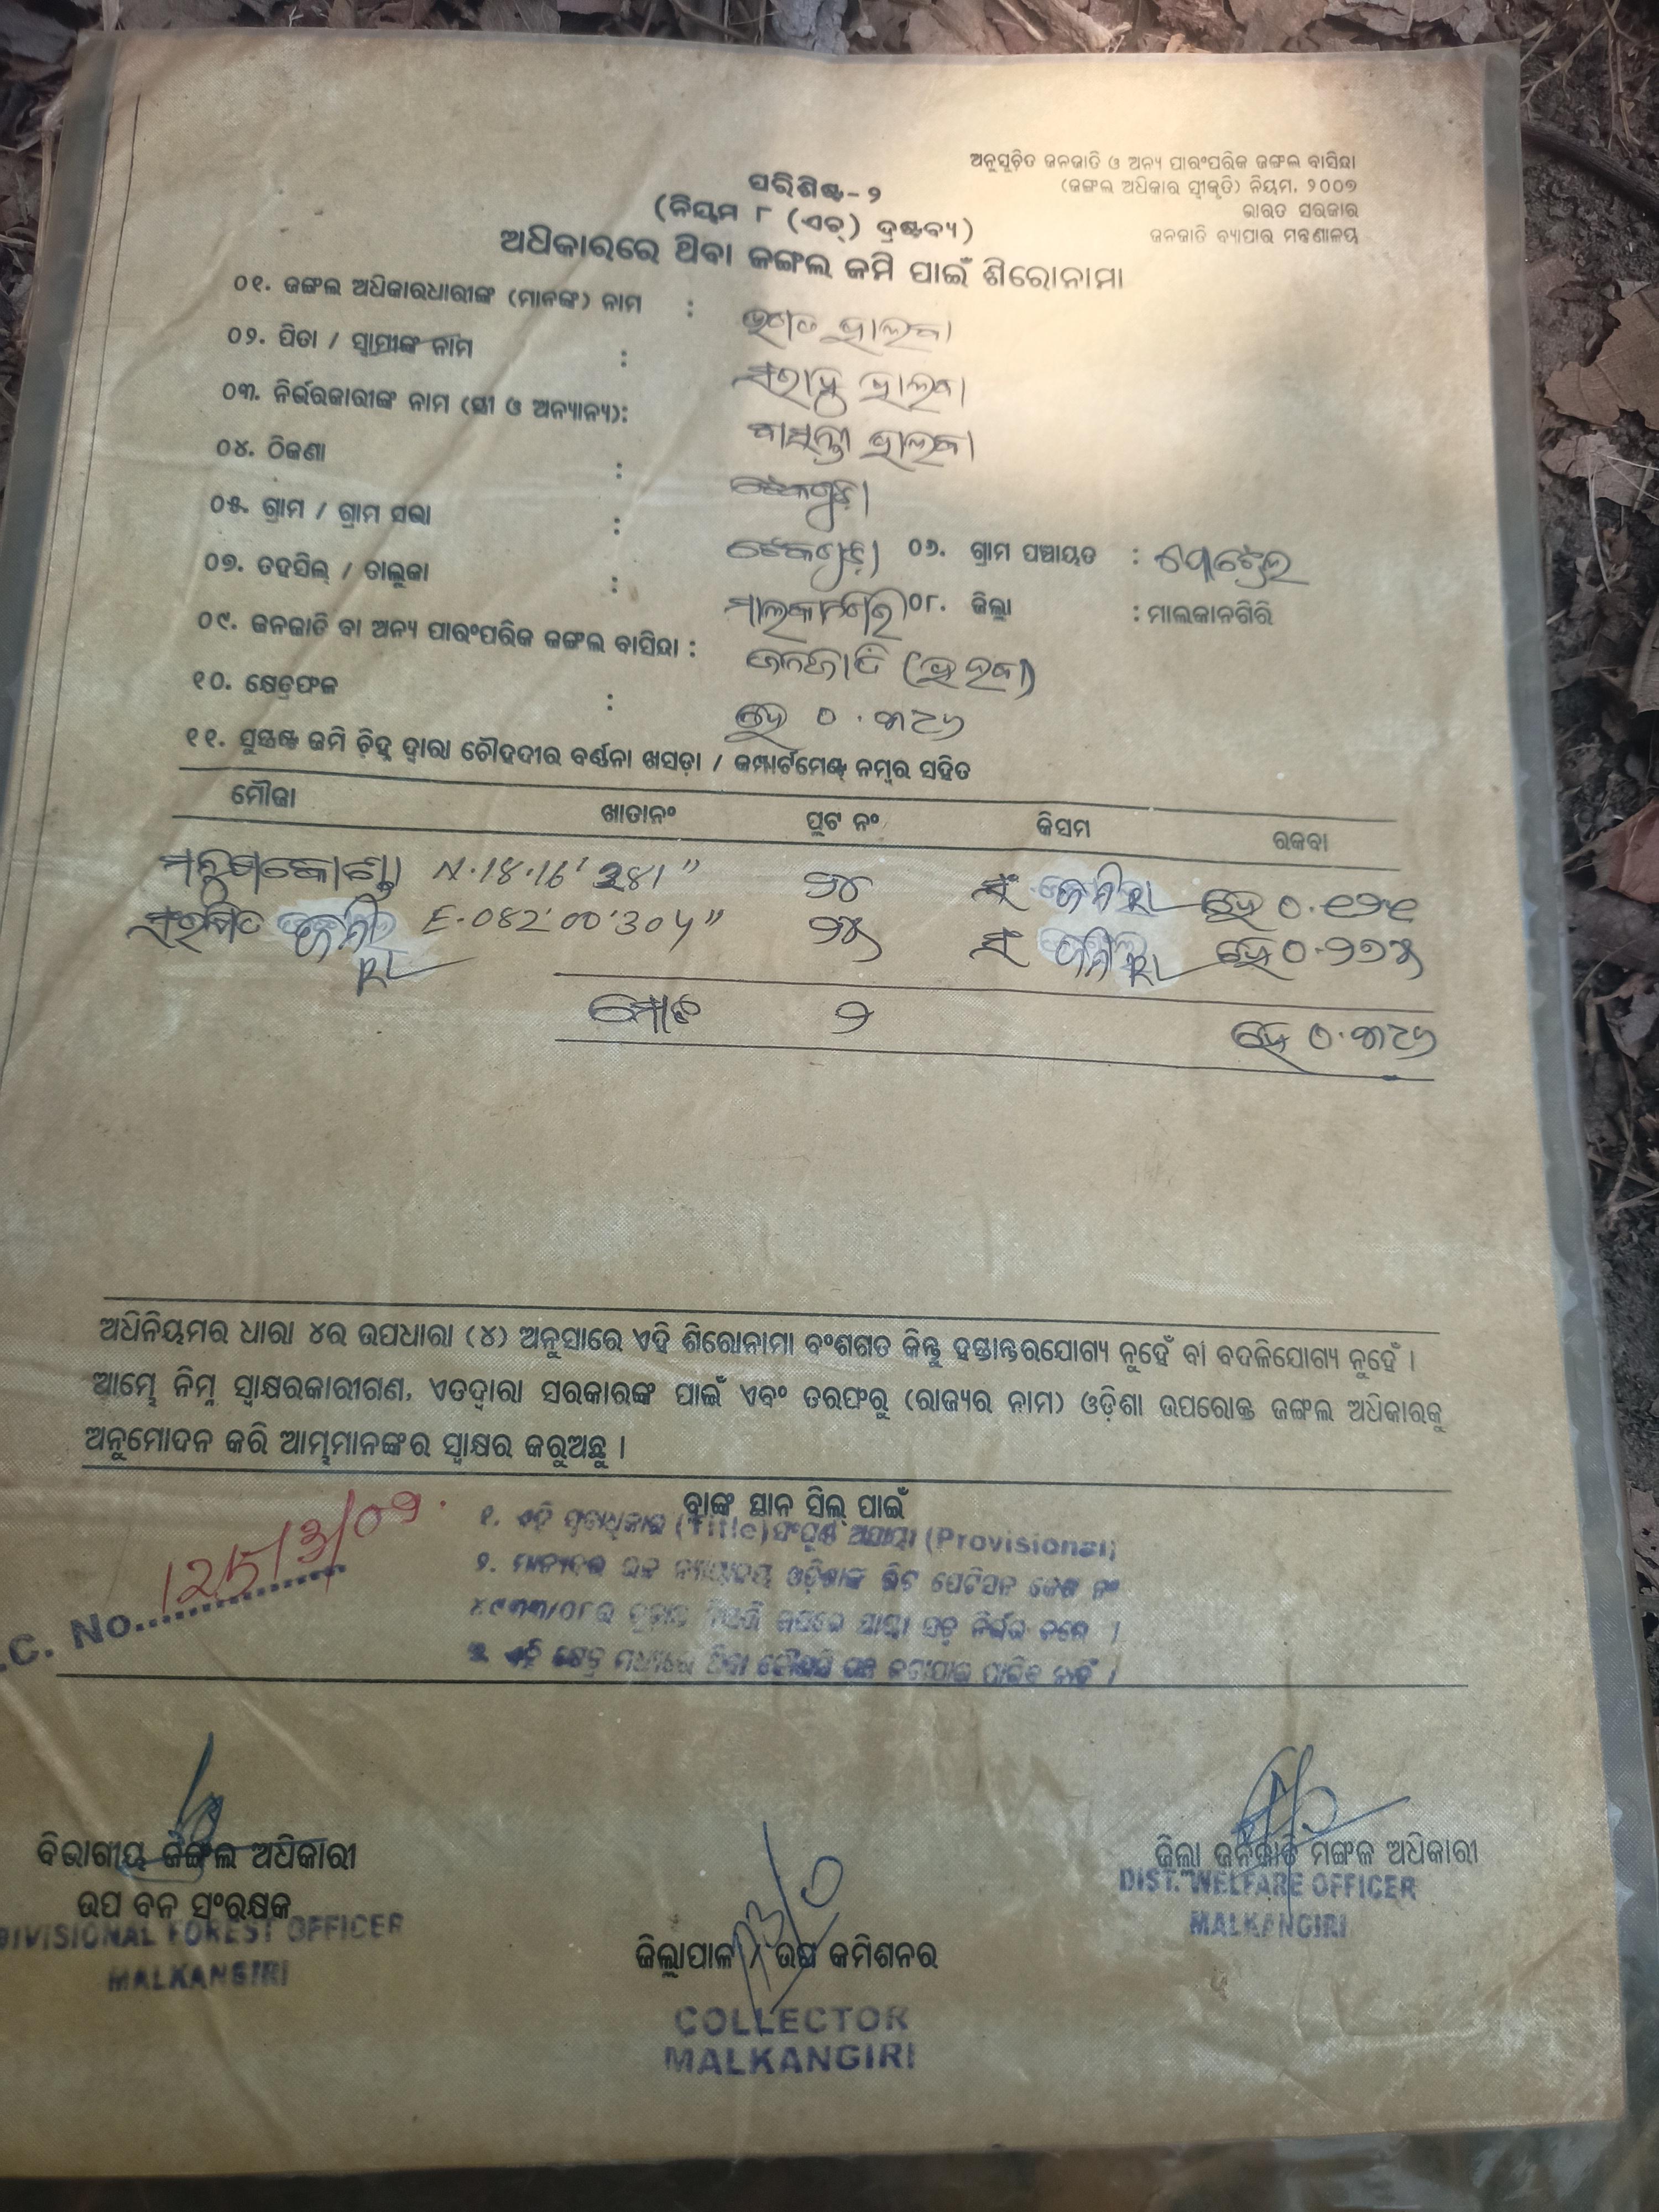 ଅନୁସୂଚିତ ଜନଜାତି ଓ ଅନ୍ୟ ପାରଂପରିକ ଜଙ୍ଗଲ ବାସିନ୍ଦା
(ଜଙ୍ଗଲ ଅଧିକାର ସ୍ୱୀକୃତି) ନିୟମ, ୨୦୦୭
ଭାରତ ସରକାର
ଜନଜାତି ବ୍ୟାପାର ମନ୍ତ୍ରଣାଳୟ
ପରିଶିଷ୍ଟ-୨
(ନିୟମ ୮ (ଏଚ୍) ଦ୍ରଷ୍ଟବ୍ୟ)
ଅଧିକାରରେ ଥିବା ଜଙ୍ଗଲ ଜମି ପାଇଁ ଶିରୋନାମା
୦୧. ଜଙ୍ଗଲ ଅଧିକାରଧାରୀଙ୍କ (ମାନଙ୍କ) ନାମ :
୦୨. ପିତା / ସ୍ୱାମୀଙ୍କ ନାମ :
୦୩. ନିର୍ଭରକାରୀଙ୍କ ନାମ (ସ୍ତ୍ରୀ ଓ ଅନ୍ୟାନ୍ୟ): ବାସନ୍ତୀ
୦୪. ଠିକଣା :
୦୫. ଗ୍ରାମ / ଗ୍ରାମ ସଭା : ୦୬. ଗ୍ରାମ ପଞ୍ଚାୟତ :
୦୭. ତହସିଲ୍ / ତାଲୁକା : ମାଲକାନଗିରି ୦୮. ଜିଲ୍ଲା : ମାଲକାନଗିରି
୦୯. ଜନଜାତି ବା ଅନ୍ୟ ପାରଂପରିକ ଜଙ୍ଗଲ ବାସିନ୍ଦା : ଜନଜାତି
୧୦. କ୍ଷେତ୍ରଫଳ : ହେ ୦.୩୯୬
୧୧. ସୁସ୍ପଷ୍ଟ ଜମି ଚିହ୍ନ ଦ୍ୱାରା ଚୌହଦୀର ବର୍ଣ୍ଣନା ଖସଡ଼ା / କମ୍ପାର୍ଟମେଣ୍ଟ ନମ୍ବର ସହିତ
ମୌଜା ଖାତାନଂ ପ୍ଲଟ ନଂ କିସମ ରକବା
N.18.16' 281" ୨୪ ହେ ୦.୧୨୧
E.082'00'304" ୨୫ ହେ ୦.୨୭୫
ମୋଟ ୨ ହେ ୦.୩୯୬
ଅଧିନିୟମର ଧାରା ୪ର ଉପଧାରା (୪) ଅନୁସାରେ ଏହି ଶିରୋନାମା ବଂଶଗତ କିନ୍ତୁ ହସ୍ତାନ୍ତରଯୋଗ୍ୟ ନୁହେଁ ବା ବଦଳିଯୋଗ୍ୟ ନୁହେଁ ।
ଆମ୍ଭେ ନିମ୍ନ ସ୍ୱାକ୍ଷରକାରୀଗଣ, ଏତଦ୍ଦ୍ୱାରା ସରକାରଙ୍କ ପାଇଁ ଏବଂ ତରଫରୁ (ରାଜ୍ୟର ନାମ) ଓଡ଼ିଶା ଉପରୋକ୍ତ ଜଙ୍ଗଲ ଅଧିକାରକୁ
ଅନୁମୋଦନ କରି ଆମ୍ଭମାନଙ୍କର ସ୍ୱାକ୍ଷର କରୁଅଛୁ ।
ବ୍ଲାଙ୍କ ସ୍ଥାନ ସିଲ୍ ପାଇଁ
୧. ଏହି (Title) ସଂପୂର୍ଣ୍ଣ ଅସ୍ଥାୟୀ (Provisional)
୨. ମାନ୍ୟବର ଉଚ୍ଚ ନ୍ୟାୟାଳୟ ଓଡ଼ିଶାଙ୍କ ରିଟ ପେଟିସନ କେଶ ନଂ
୪୯୩୩/୦୮ର ନିର୍ଭର କରେ ।
୩. ଏହି କ୍ଷେତ୍ର ମଧ୍ୟରେ ଥିବା କୌଣସି ଗଛ କଟାଯାଇ ପାରିବ ନାହିଁ ।
.C. No. 1215/3/09
ବିଭାଗୀୟ ଜଙ୍ଗଲ ଅଧିକାରୀ
ଉପ ବନ ସଂରକ୍ଷକ
DIVISIONAL FOREST OFFICER
MALKANGIRI
ଜିଲ୍ଲାପାଳ / ଉପ କମିଶନର
COLLECTOR
MALKANGIRI
ଜିଲ୍ଲା ଜନଜାତି ମଙ୍ଗଳ ଅଧିକାରୀ
DIST. WELFARE OFFICER
MALKANGIRI